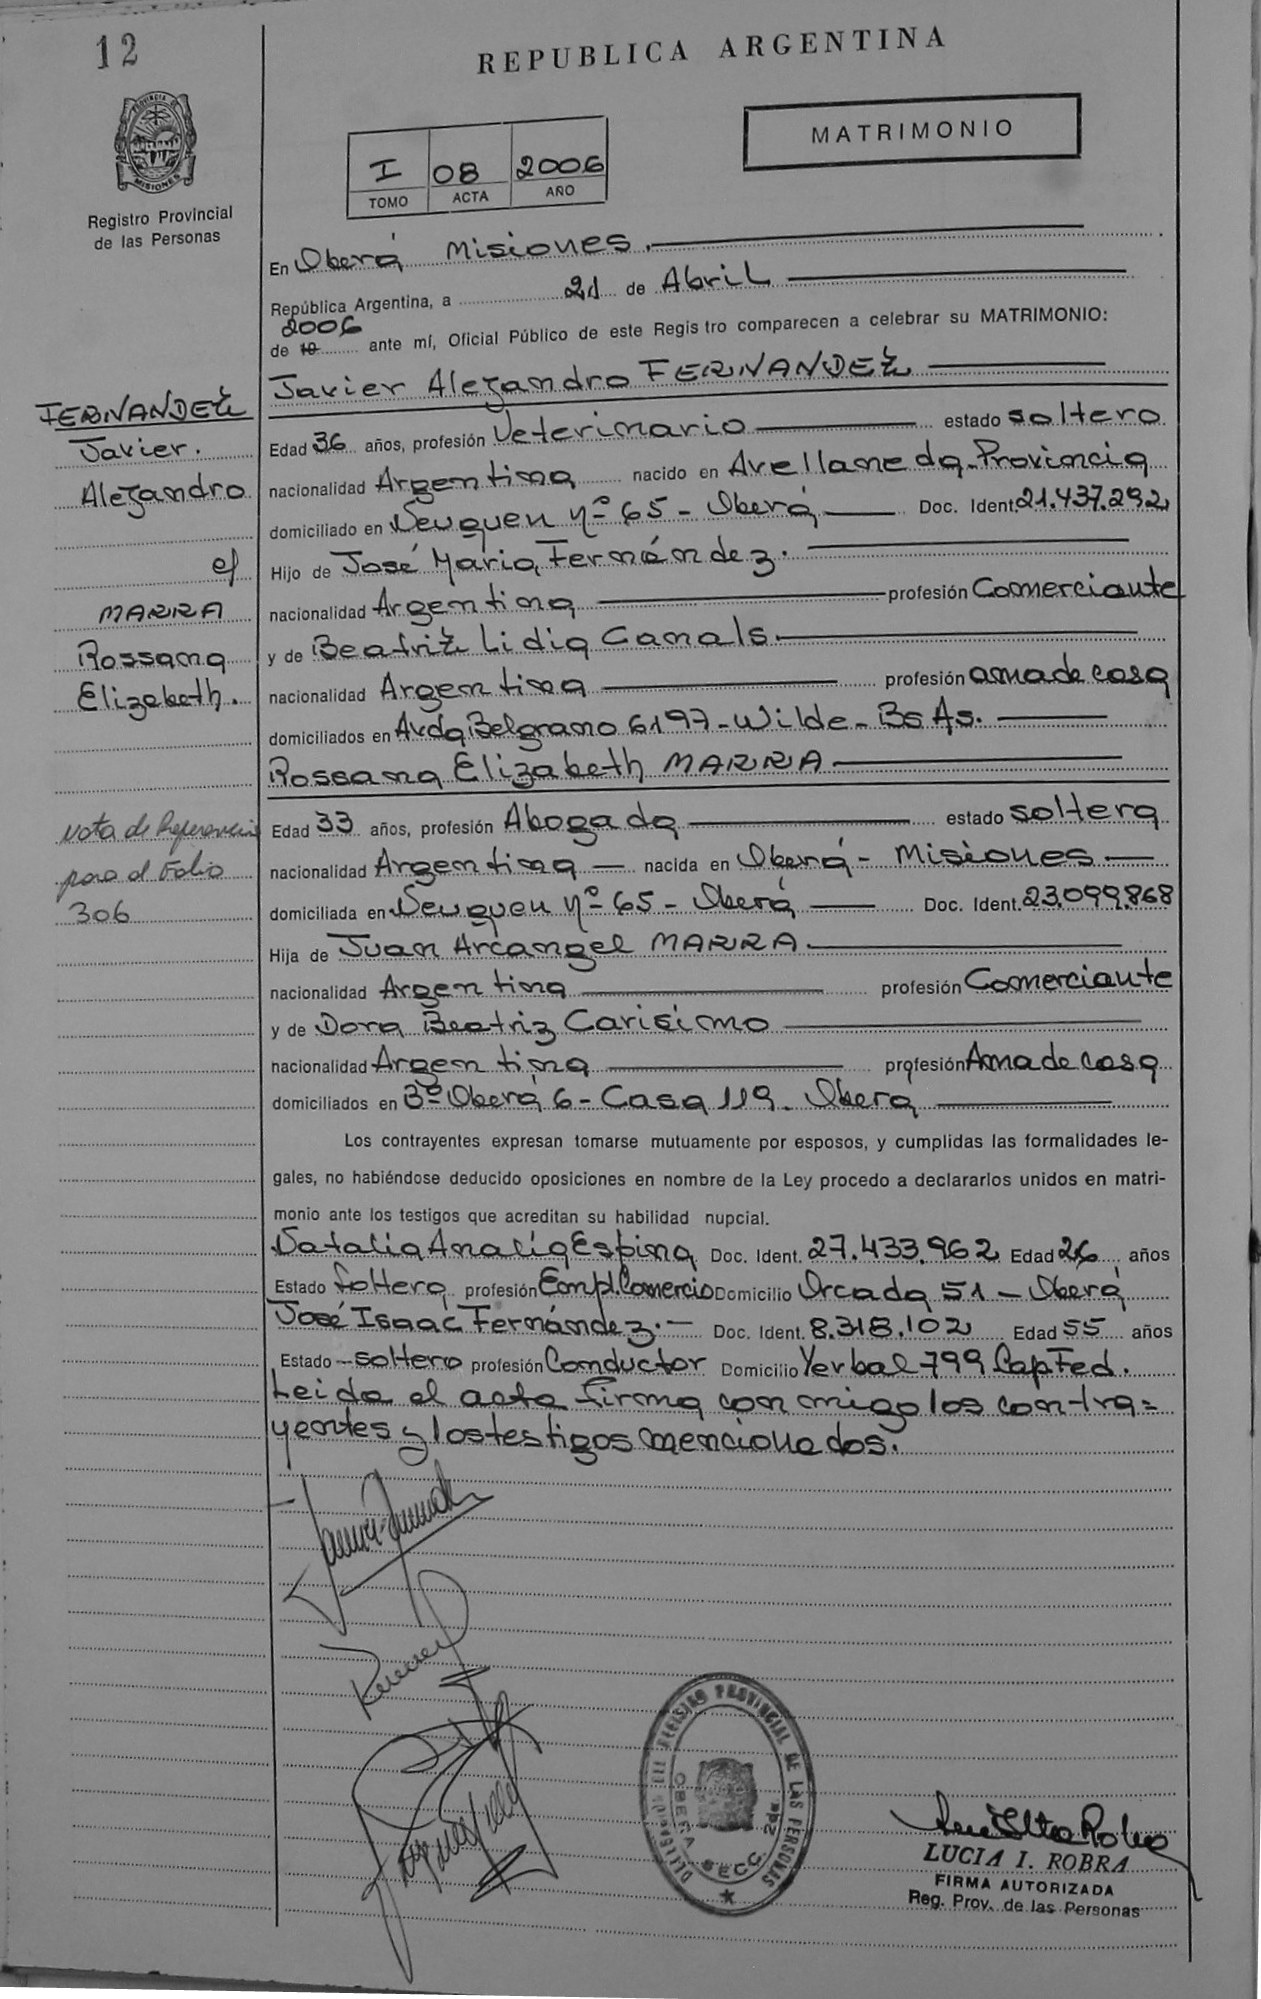 12
REPUBLICA ARGENTINA
PROVINCIA DE
MISIONES
Registro Provincial
de las Personas
MATRIMONIO
I 08 2006
TOMO ACTA AÑO
En Oberá Misiones.
República Argentina, a 21 de Abril
2006
de 19 ante mí, Oficial Público de este Registro comparecen a celebrar su MATRIMONIO:
Javier Alejandro FERNANDEZ
FERNANDEZ
Javier.
Alejandro
c/
MARRA
Rossana
Elizabeth.
Edad 36 años, profesión Veterinario estado soltero
nacionalidad Argentina nacido en Avellaneda-Provincia
domiciliado en Neuquen nº 65 - Oberá Doc. Ident. 21.437.292
Hijo de José María Fernández.
nacionalidad Argentina profesión Comerciante
y de Beatriz Lidia Canals.
nacionalidad Argentina profesión ama de casa
domiciliados en Avda Belgrano 6197-Wilde-Bs As.
Rossana Elizabeth MARRA
Nota de Referencia
para al Folio
306
Edad 33 años, profesión Abogada estado soltera
nacionalidad Argentina nacida en Oberá - Misiones
domiciliada en Neuquen nº 65 - Oberá Doc. Ident. 23.099.868
Hija de Juan Arcangel MARRA
nacionalidad Argentina profesión Comerciante
y de Dora Beatriz Carisimo
nacionalidad Argentina profesión Ama de casa
domiciliados en Bº Oberá 6 - Casa 119. Obera
Los contrayentes expresan tomarse mutuamente por esposos, y cumplidas las formalidades le-
gales, no habiéndose deducido oposiciones en nombre de la Ley procedo a declararlos unidos en matri-
monio ante los testigos que acreditan su habilidad nupcial.
Natalia Analía Espina Doc. Ident. 27.433.962 Edad 26 años
Estado Soltera profesión Empl. Comercio Domicilio Orcada 51 - Oberá
José Isaac Fernández. - Doc. Ident. 8.318.102 Edad 55 años
Estado - soltero profesión Conductor Domicilio Yerbal 799 Cap Fed.
Leida el acta firma con migo los contra=
yentes y los testigos mencionados.
DELEGACION DEL REGISTRO PROVINCIAL DE LAS PERSONAS
OBERA SECC. 2da
LUCIA I. ROBRA
FIRMA AUTORIZADA
Reg. Prov. de las Personas